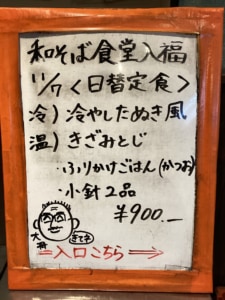 和そば食堂入福
11/7<日替定食>
冷)冷やしたぬき風
温)きざみとじ
・ふりかけごはん(かつお)
・小針2品
¥900.—
大将
きてネ
⇒入口こちら⇒